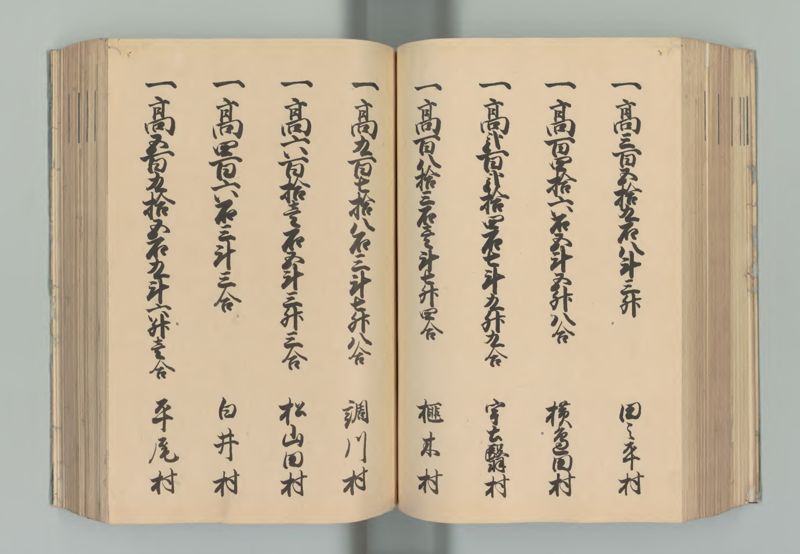 一高三百五拾九石八斗三升 田之平村
一高百四拾六石五斗五升八合 横邊田村
一高弐百弐拾四石七斗九升九合 村
一高百八拾三石壱斗七升四合 榧木村
一高九百七拾八石三斗七升八合 調川村
一高六百拾壱石五斗三升三合 松山田村
一高四百六石三斗三合 白井村
一高五百九拾五石九斗六升壱合 平尾村